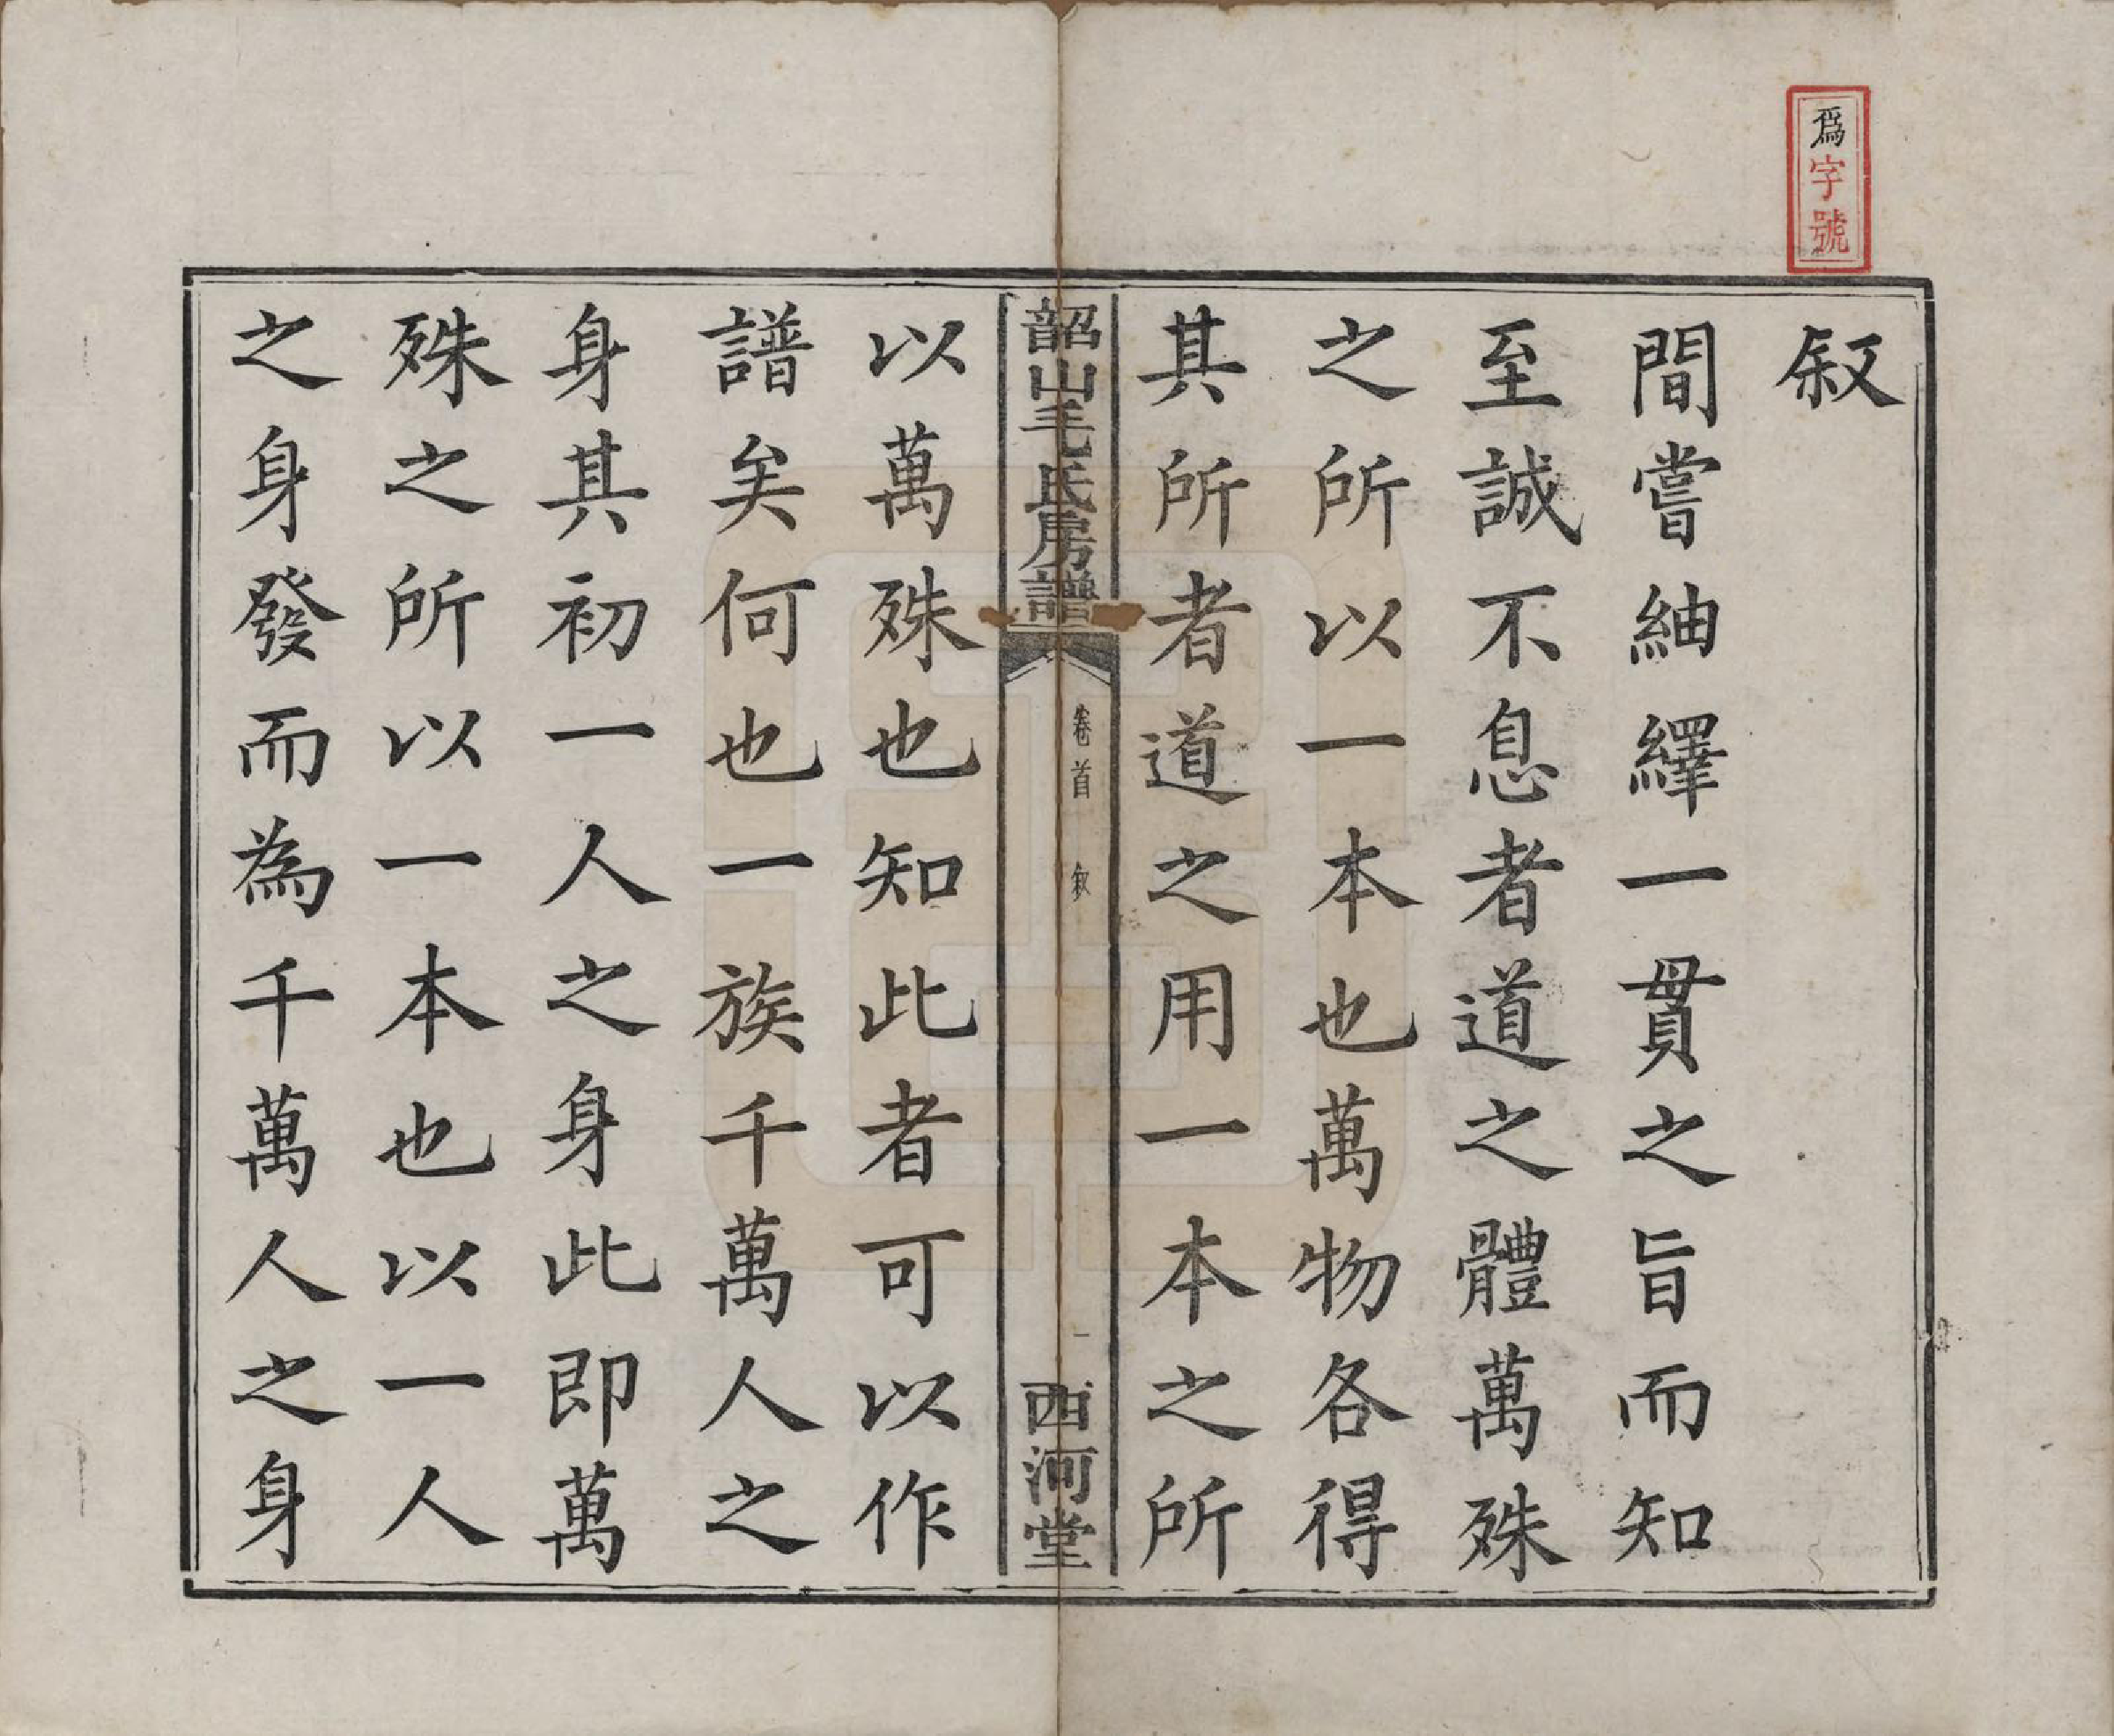 爲字號
叙
間嘗紬繹一貫之旨而知
至誠不息者道之體萬殊
之所以一本也萬物各得
其所者道之用一本之所
韶山毛氏房譜
卷首
叙
一
西河堂
以萬殊也知此者可以作
譜矣何也一族千萬人之
身其初一人之身此即萬
殊之所以一本也以一人
之身發而為千萬人之身